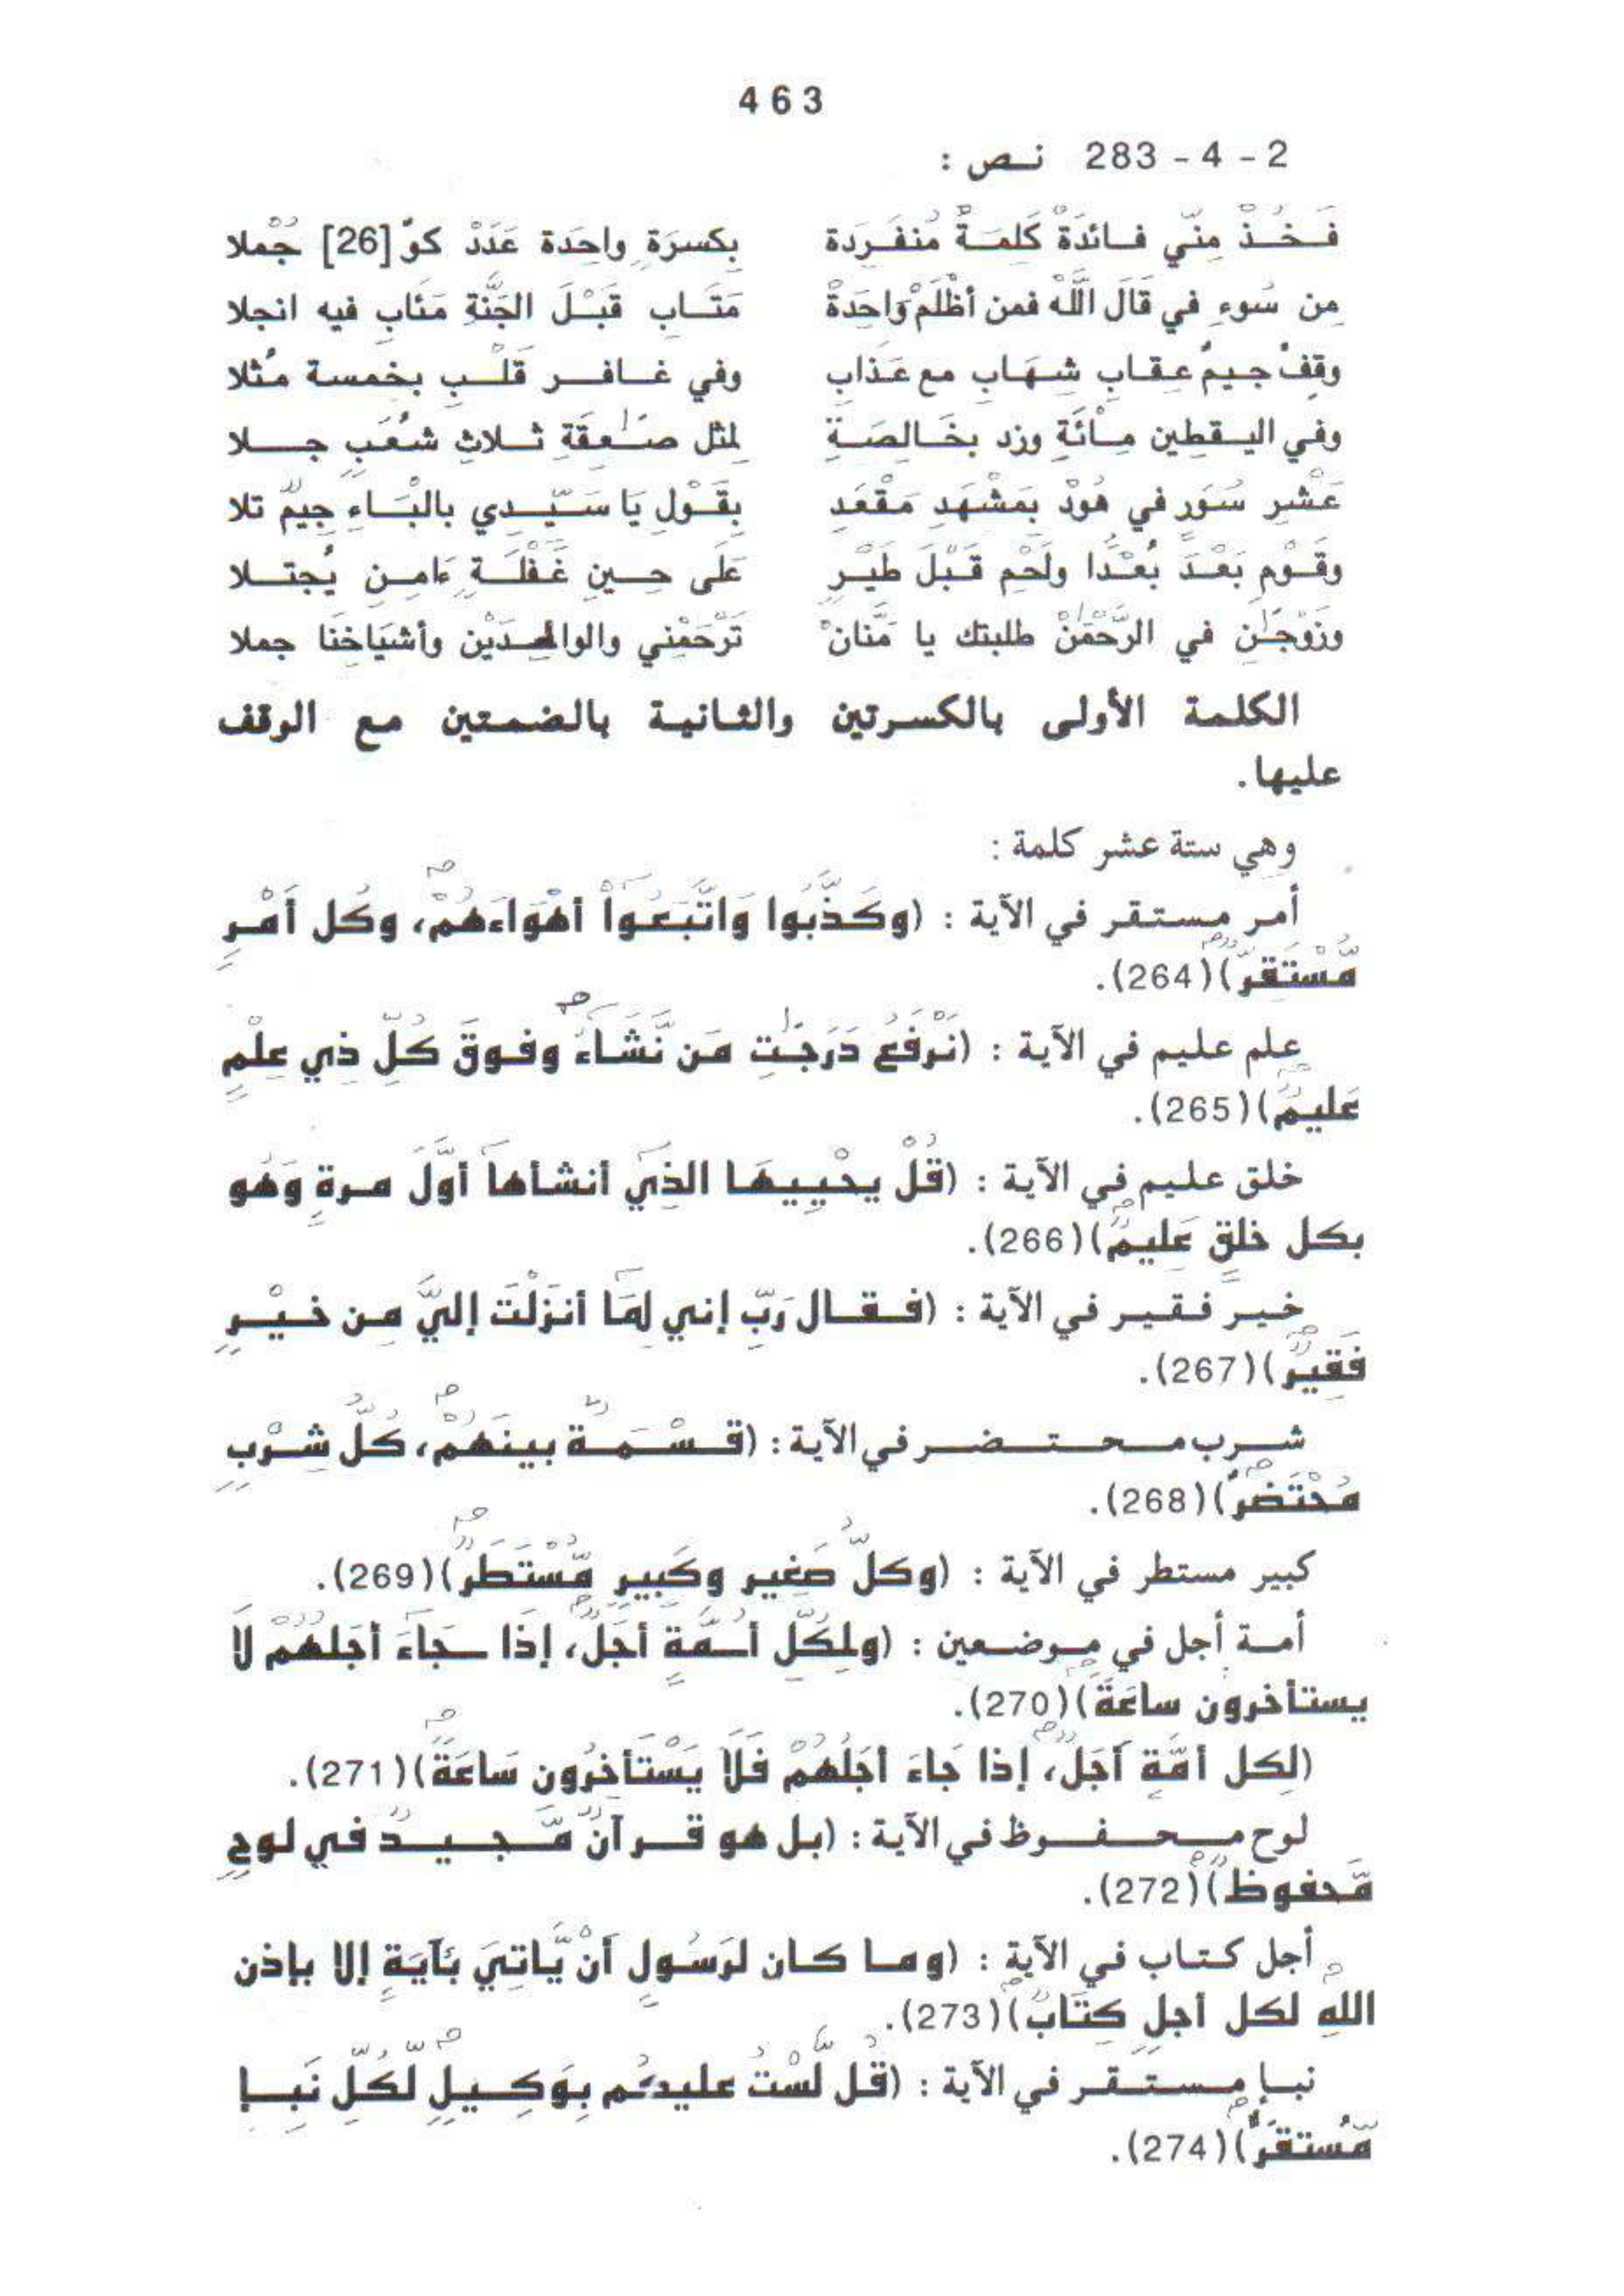 463
2 - 4 - 283 نـص :
فَـخُـذْ مِنّي فـائدَةْ كَلِمَـةْ مُنفَـرِدة بِكسرَةٍ واحِدَة عَدَدْ كوّ [26] جُمْلا
مِن سُوءٍ في قَالَ اللَّهْ فمن أظْلَمْ وَاحِدَةْ مَتَـابِ قَبْـلَ الجَنَّةِ مَئَابِ فيه انجلا
وقِفْ جيمُ عِقابِ شِهَابِ مع عَذابِ وفي غـافـر قَلْـبِ بخمسة مُثلا
وفي اليـقطِين مِـاْئَةِ وزد بخَـالِصَـةٍ لمثل صَـٰعِقَةِ ثـلاثِ شُعَبٍ جــلا
عَشْرِ سُوَرٍ في هُودْ بِمَشْهَدِ مَقْعَدِ بِقَـوْلِ يَا سَيّـدِي بالْبَـاءِ جِيمٌ تلا
وقَـوْمٍ بَعْـدَ بُعْـدًا ولَحْمِ قَـبْلَ طَيْـرٍ عَلَى حِـينِ غَفْلَـةٍ ءَامِـنِ يُجتـلا
وزَوْجَـٰنِ في الرَّحْمَٰنْ طلبتك يا مَنَّانْ تَرْحَمْنِي والوالِدَيْنِ وأشيَاخِنَا جملا
الكلمة الأولى بالكسرتين والثانية بالضمتين مع الوقف
عليها.
وهي ستة عشر كلمة :
أمر مستقر في الآية : (وكَـذَّبُوا وَاتَّبَعُوا أهْوَاءَهُمْ، وكُل أمْـرٍ
مُّسْتَقِرٌّ)(264).
علم عليم في الآية : (نَرْفَعُ دَرَجَـٰتِ مَن نَّشَـاءُ وفـوقَ كُلِّ ذِي عِلْمٍ
عَليمٌ)(265).
خلق عليم في الآية : (قُلْ يحْيِيهَا الذِي أنشأها أوَّلَ مـرةٍ وَهُو
بكل خلقٍ عَلِيمٌ)(266).
خيـر فـقيـر في الآية : (فـقـال رَبِّ إني لِمَا أنزَلْتَ إليَّ مِـن خـيْـرٍ
فَقِيرٌ)(267).
شـرب محـتـضـر في الآية : (قـسْـمَـةٌ بينَهُمْ، كُلُّ شِـرْبٍ
مُحْتَضَرٌ)(268).
كبير مستطر في الآية : (وكلُّ صَغِيرٍ وكَبِيرٍ مُّسْتَطَرٌ)(269).
أمـة أجل في مـوضـعين : (ولِكُلِّ أمَّةٍ أجَلٌ، إذَا جَاءَ أجَلُهُمْ لاَ
يستأخرون ساعَةً)(270).
(لِكل أمَّةٍ أجَلٌ، إذا جَاءَ أجَلُهُمْ فَلاَ يَسْتَأخِرُون سَاعَةً)(271).
لوح مـحـفـوظ في الآية : (بـل هو قـرآنٌ مَّجـيـدٌ في لـوحٍ
مَّحفوظٌ)(272).
أجل كـتـاب في الآية : (ومـا كـان لرَسُـولٍ أنْ يَّاتِيَ بَئَايَةٍ إلا بإذن
اللهِ لكل أجلٍ كِتَابٌ)(273).
نبـإ مسـتـقـر في الآية : (قُـل لَّسْتُ عليكُم بِوَكِـيـلٍ لِّكُلِّ نَبَـإٍ
مُّستقَرٌّ)(274).